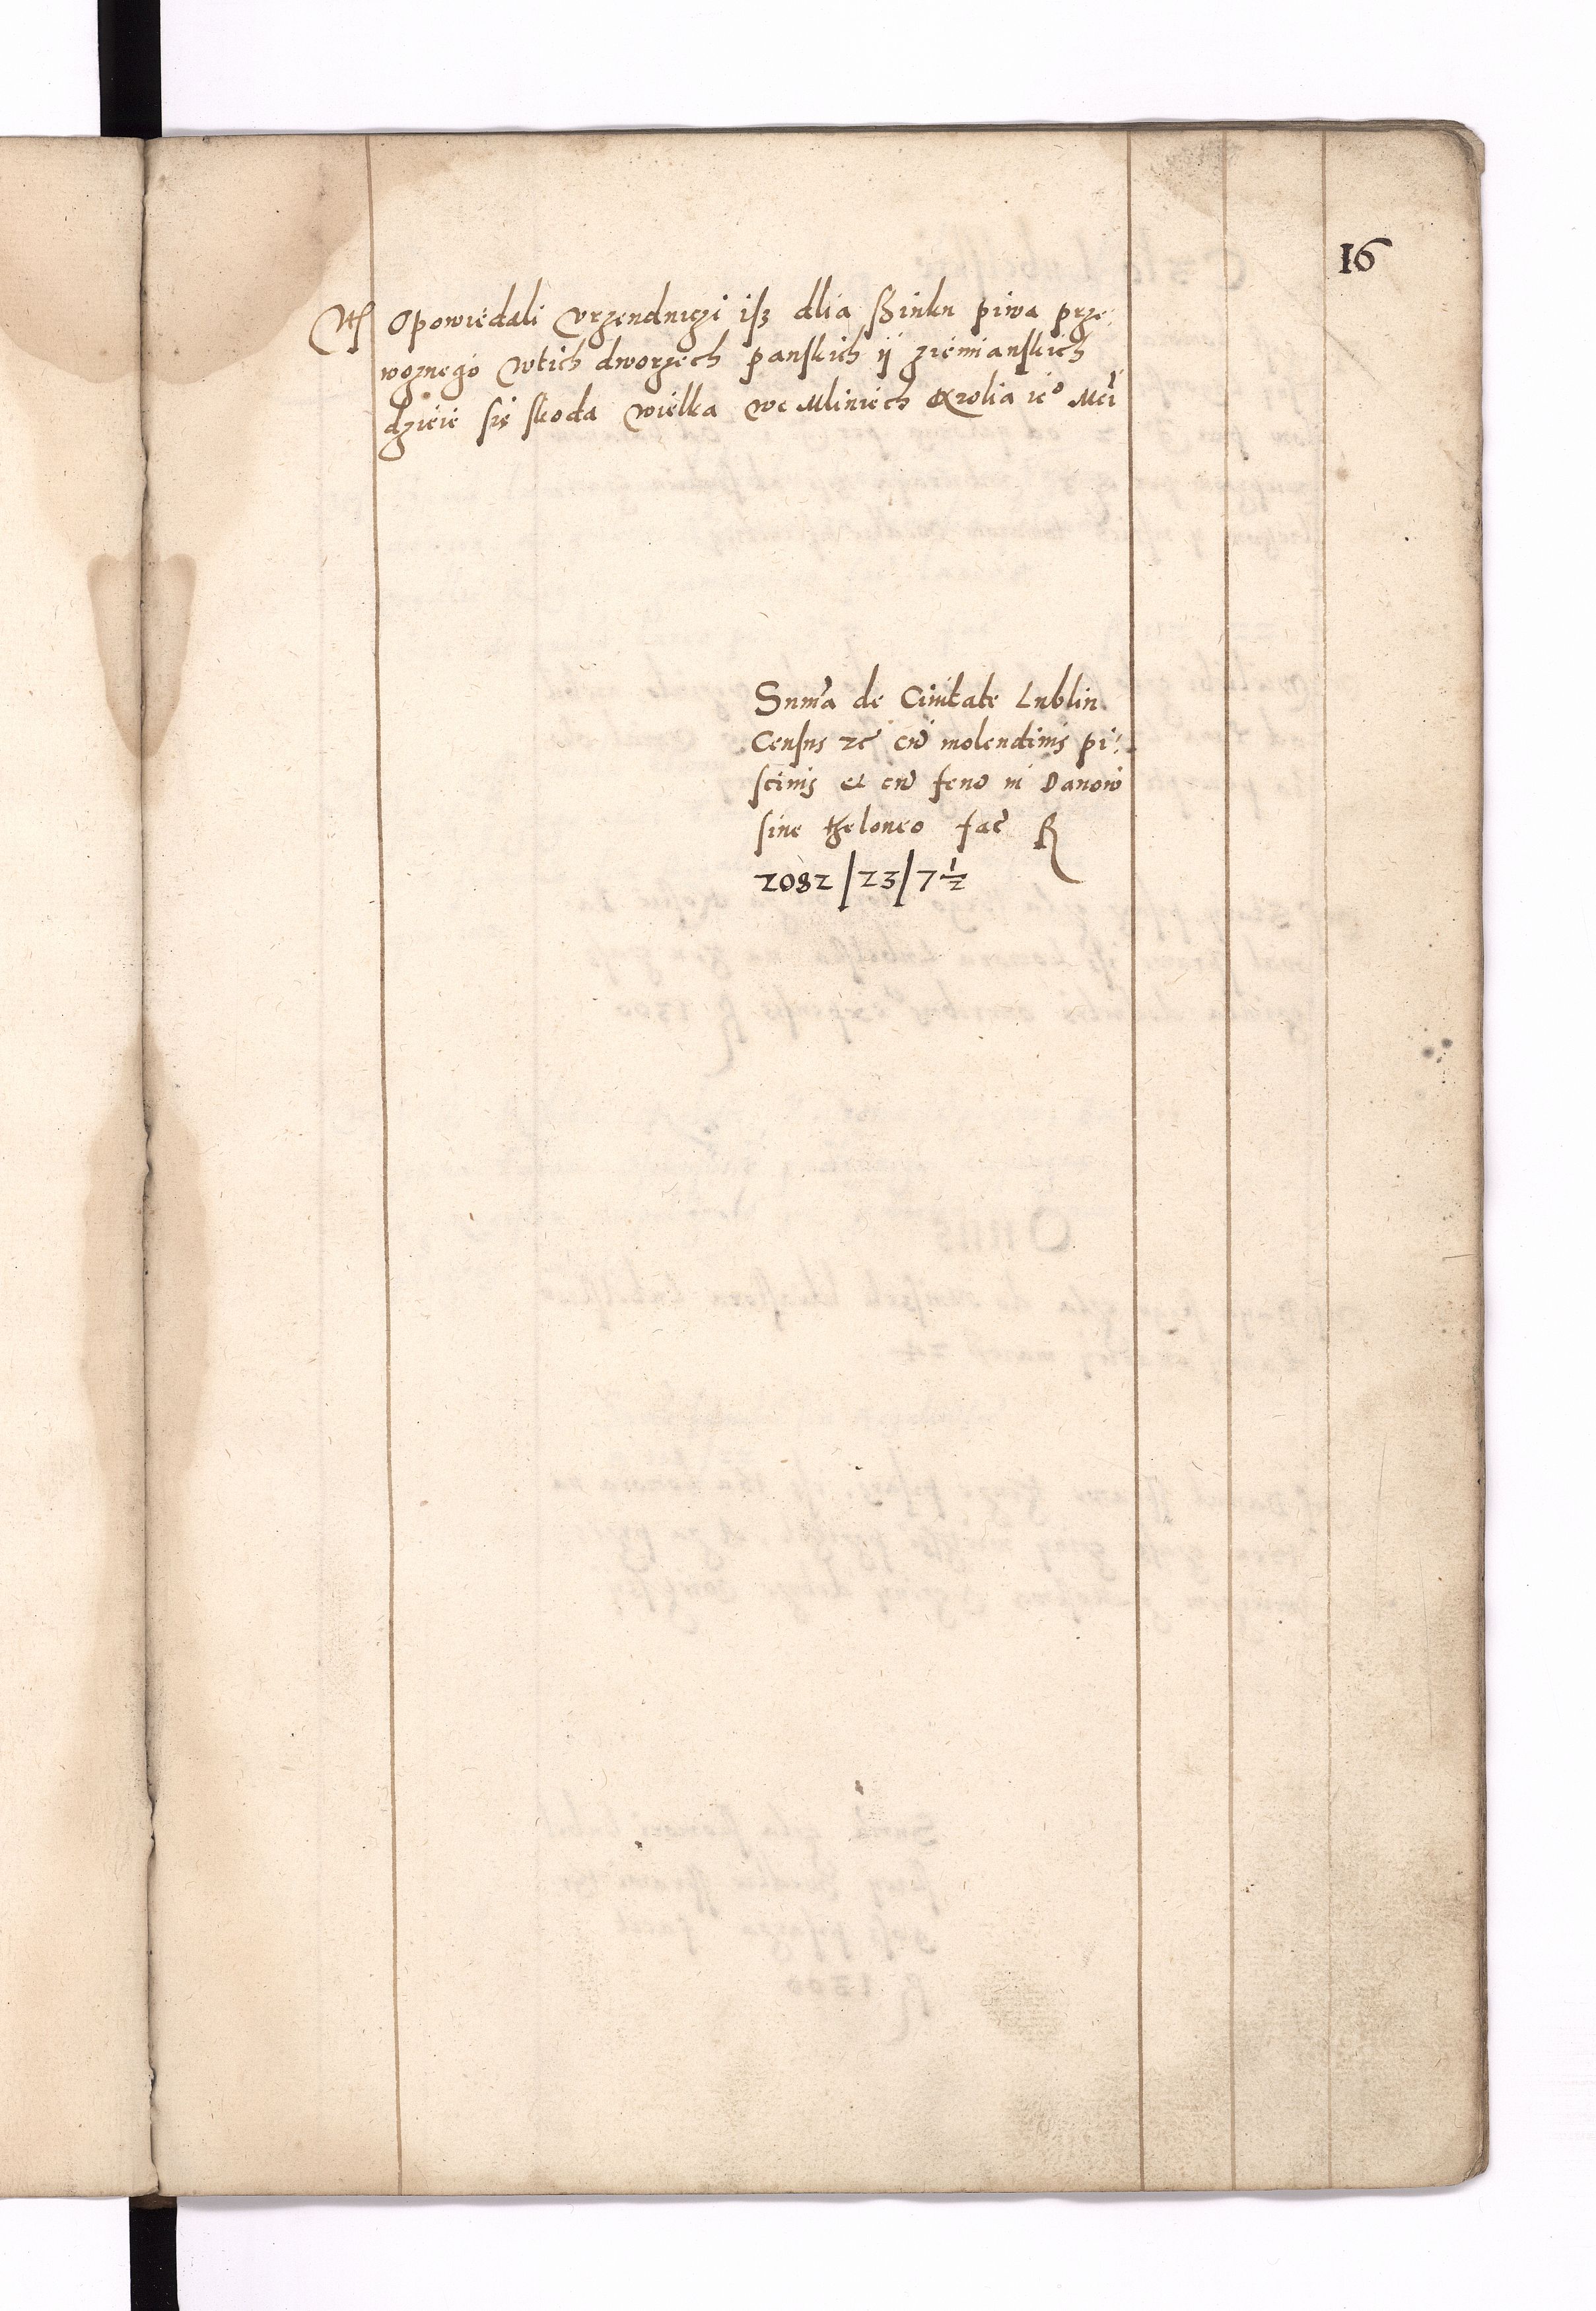 16
Opowiedali vrzendniczi isz dlia ssinku piwa prze⸗
woznego wtich dworzech panskich ij ziemianskich
dzieie się skoda wielka we Mliniech Krolia ie° Mci
Sum̃a de Ciuitate Lublin.
Census rc̃ cũ molendinis pi⸗
scinis et cũ feno in Danow
sine theloneo fac̃ R
2082/23/7½